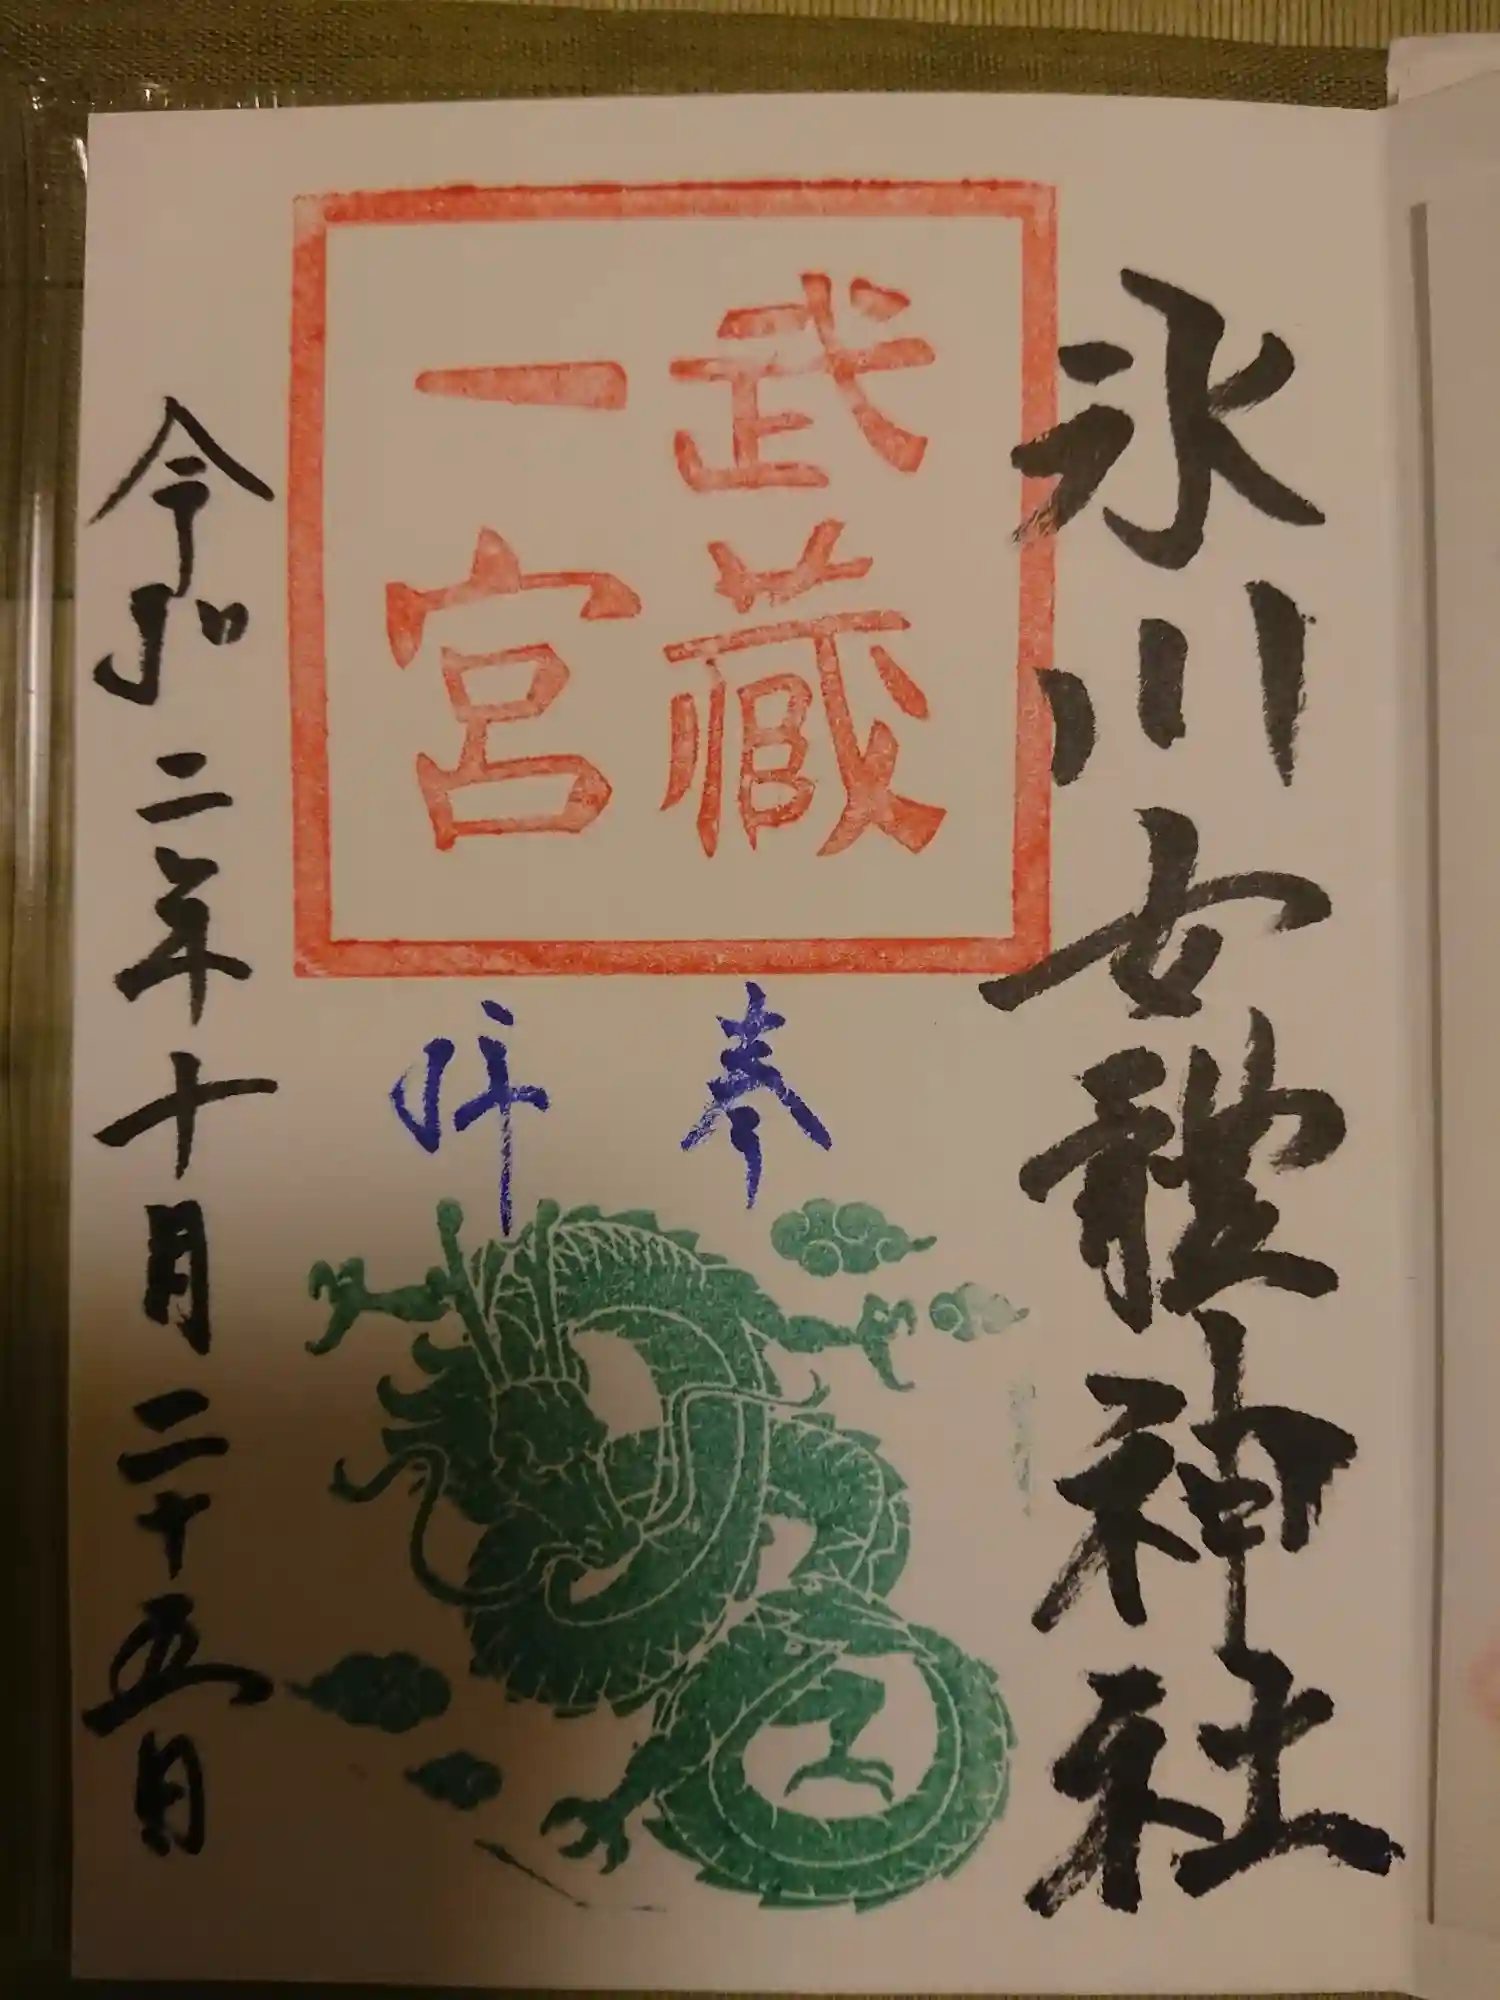 氷川女體神社
武蔵
一宮
奉拝
令和二年十月二十五日